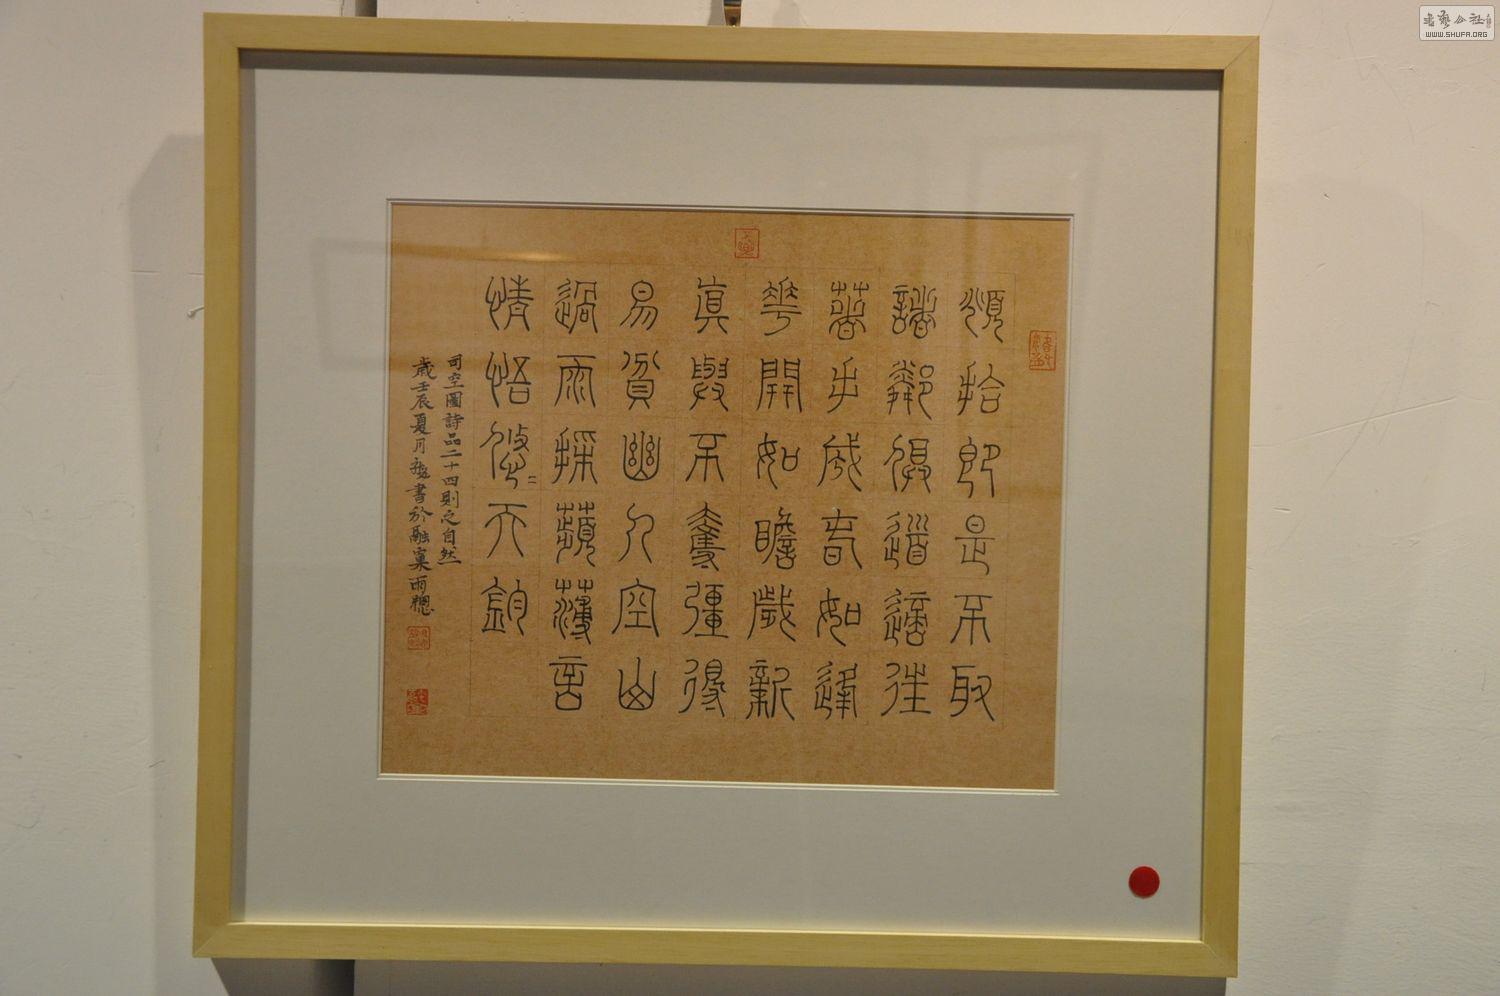 頫拾即是不取
諸鄰俱道適往
著手成春如逢
華開如瞻歲新
真與不奪彊得
易貧幽人空山
過雨採蘋薄言
情悟悠〻天鈞
司空圖詩品二十四則之自然
歲壬辰夏月書於融窠雨
書藝公社
WWW.SHUFA.ORG